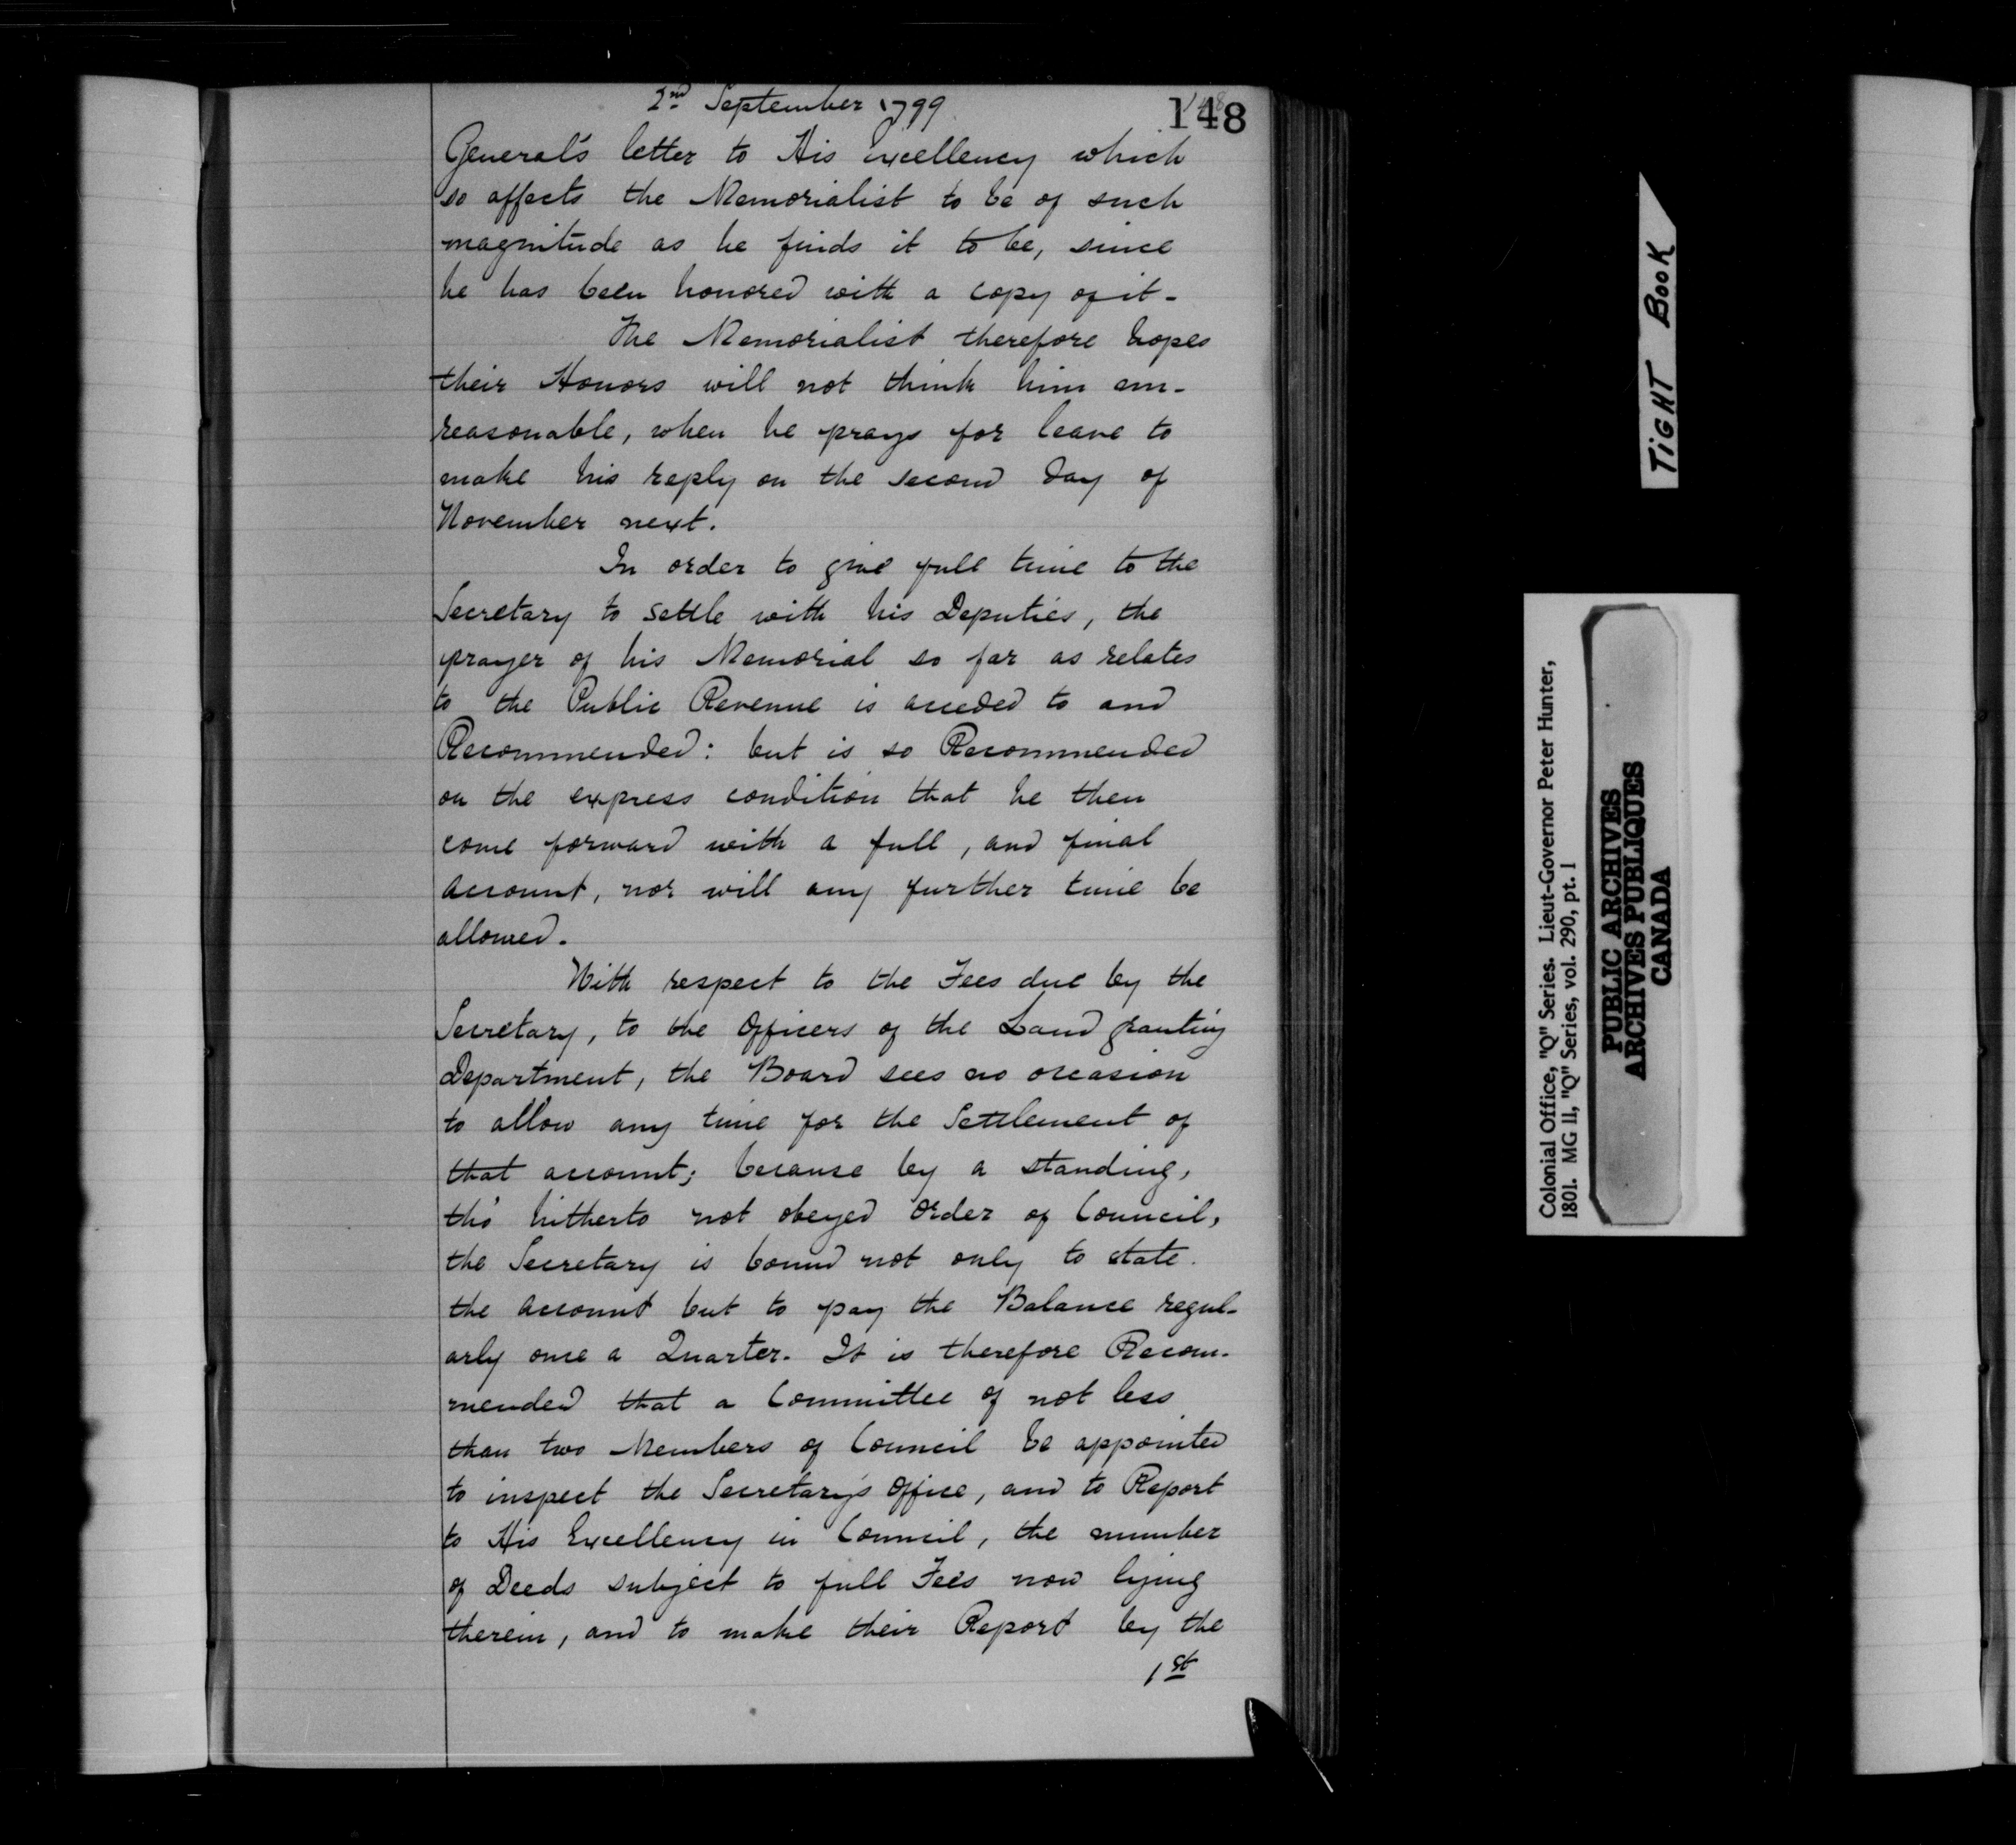 2nd September 1799
148
General's letter to His excellency which
so affects the Memorialist to be of such
magnitude as he finds it to be, since
he has been honored with a copy of it-
The Memorialist therefore hopes
their Honors will not think him un-
reasonable, when he prays for leave to
make his reply on the second day of
November next.
In order to give full time to the
Secretary to settle with his Deputies, the
prayer of his Memorial so far as relates
to the Public Revenue is acceded to and
Recommended: but is so Recommended
on the express condition that he then
come forward with a full, and final
account, nor will any further time be
allowed.
With respect to the Fees due by the
Secretary, to the Officers of the Land granting
Department, the Board sees no occasion
to allow any time for the Settlement of
that account; because by a standing,
tho' hitherto not obeyed order of Council,
the Secretary is bound not only to state
the account but to pay the Balance regul-
arly once a Quarter. It is therefore Recom-
mended that a Committee of not less
than two Members of Council be appointed
to inspect the Secretary's Office, and to Report
to His Excellency in Council, the number
of Deeds subject to full Fees now lying
therein, and to make their Report by the
1st
TIGHT BOOK
Colonial Office, "Q" Series. Lieut-Governor Peter Hunter,
1801. MG 11, "Q" Series, vol. 290, pt. 1
PUBLIC ARCHIVES
ARCHIVES PUBLIQUES
CANADA